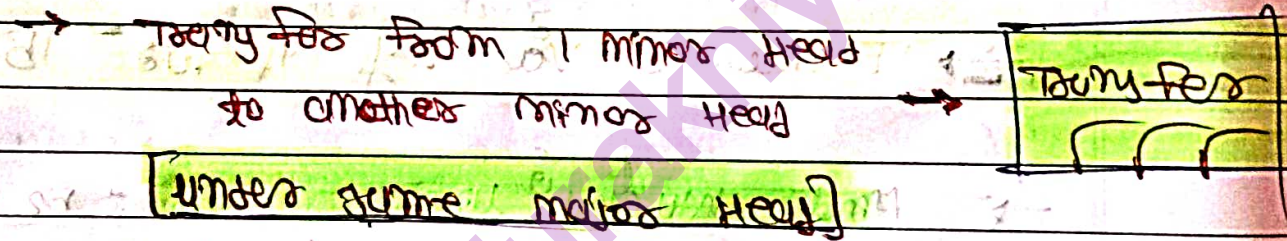 → Transfer from 1 minor Head
to another minor Head → Transfer
[under same major Head]